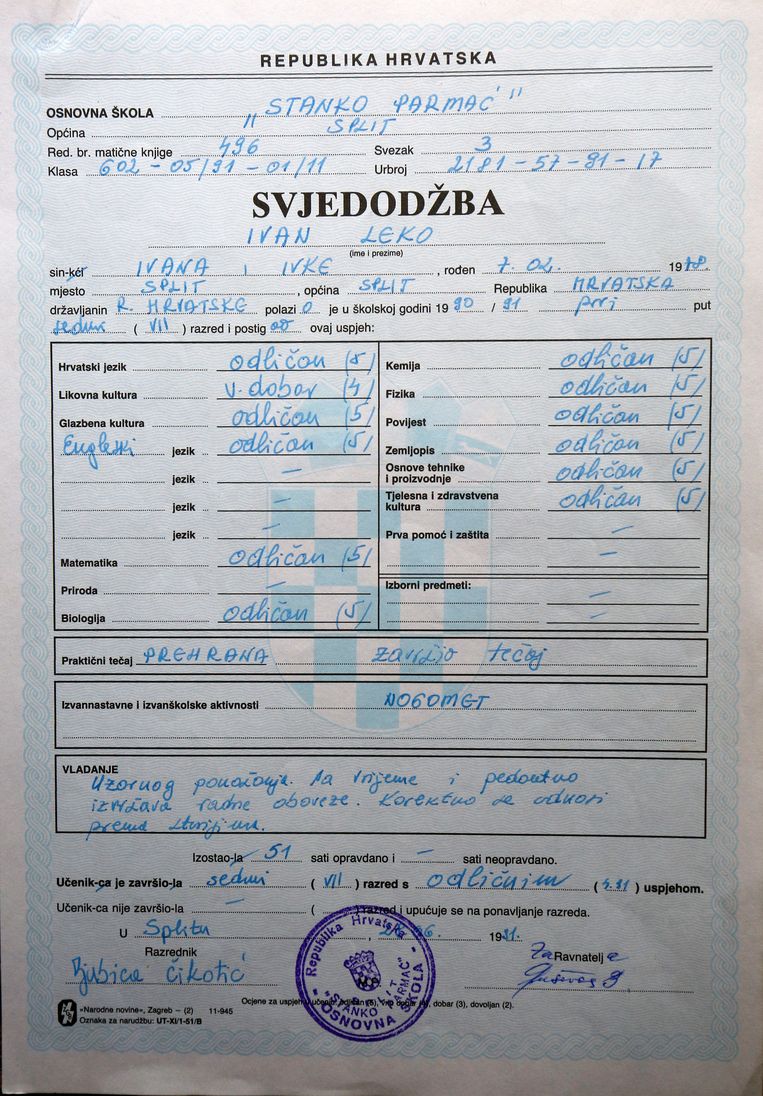 REPUBLIKA HRVATSKA
OSNOVNA ŠKOLA „STANKO PARMAĆ"
Općina SPLIT
Red. br. matične knjige 496 Svezak 3
Klasa 602-05/91-01/11 Urbroj 2181-57-91-17
SVJEDODŽBA
IVAN LEKO
(ime i prezime)
sin-kći IVANA i IVKE, rođen 7. 02. 1978.
mjesto SPLIT, općina SPLIT Republika HRVATSKA
državljanin R. HRVATSKE polazi o je u školskoj godini 1990/91 prvi put
sedmi (VII) razred i postig ao ovaj uspjeh:
Hrvatski jezik odličan (5)
Likovna kultura v. dobar (4)
Glazbena kultura odličan (5)
Engleski jezik odličan (5)
jezik —
jezik —
jezik —
Matematika odličan (5)
Priroda —
Biologija odličan (5)
Kemija odličan (5)
Fizika odličan (5)
Povijest odličan (5)
Zemljopis odličan (5)
Osnove tehnike
i proizvodnje odličan (5)
Tjelesna i zdravstvena
kultura odličan (5)
Prva pomoć i zaštita —
—
Izborni predmeti: —
—
Praktični tečaj PREHRANA završio tečaj
Izvannastavne i izvanškolske aktivnosti NOGOMET
VLADANJE
Uzornog ponašanja. Na vrijeme i pedantno
izvršava radne obaveze. Korektno se odnosi
prema starijima.
Izostao-la 51 sati opravdano i — sati neopravdano.
Učenik-ca je završio-la sedmi (VII) razred s odličnim (4.91) uspjehom.
Učenik-ca nije završio-la — ( ) razred i upućuje se na ponavljanje razreda.
U Splitu, 06. 1991.
Razrednik
Ljubica Čikotić
Za Ravnatelja
Republika Hrvatska
SPLIT
"STANKO PARMAĆ"
- OSNOVNA ŠKOLA -
Ocjene za uspjeh u učenju: odličan (5), vrlo dobar (4), dobar (3), dovoljan (2).
«Narodne novine», Zagreb – (2) 11-945
Oznaka za narudžbu: UT-XI/1-51/B